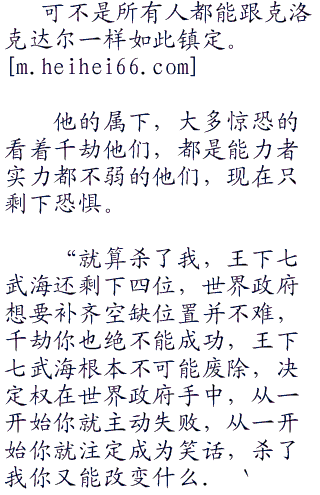 可不是所有人都能跟克洛
克达尔一样如此镇定。
[m.heihei66.com]
他的属下，大多惊恐的
看着千劫他们，都是能力者
实力都不弱的他们，现在只
剩下恐惧。
“就算杀了我，王下七
武海还剩下四位，世界政府
想要补齐空缺位置并不难，
千劫你也绝不能成功，王下
七武海根本不可能废除，决
定权在世界政府手中，从一
开始你就主动失败，从一开
始你就注定成为笑话，杀了
我你又能改变什么．‵